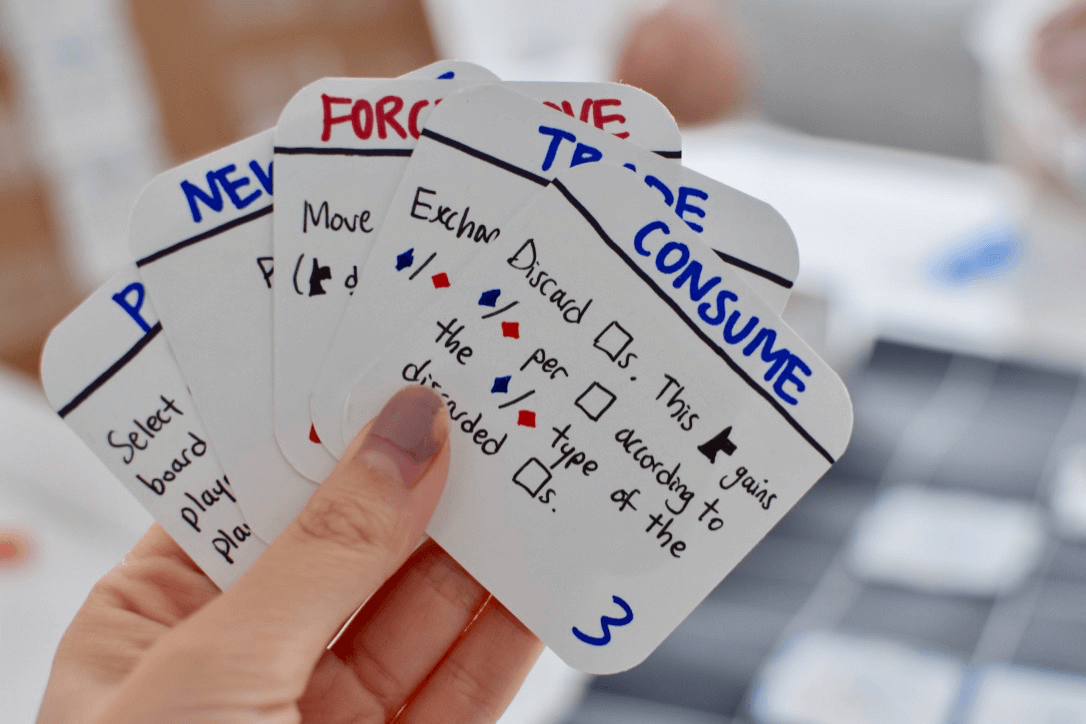 P
Select
board
play
pla
NEW
P
FORCE MOVE
Move
(
TRADE
Exchan
/
CONSUME
Discard □s. This gains
/ per □ according to
the / type of the
discarded □s.
3